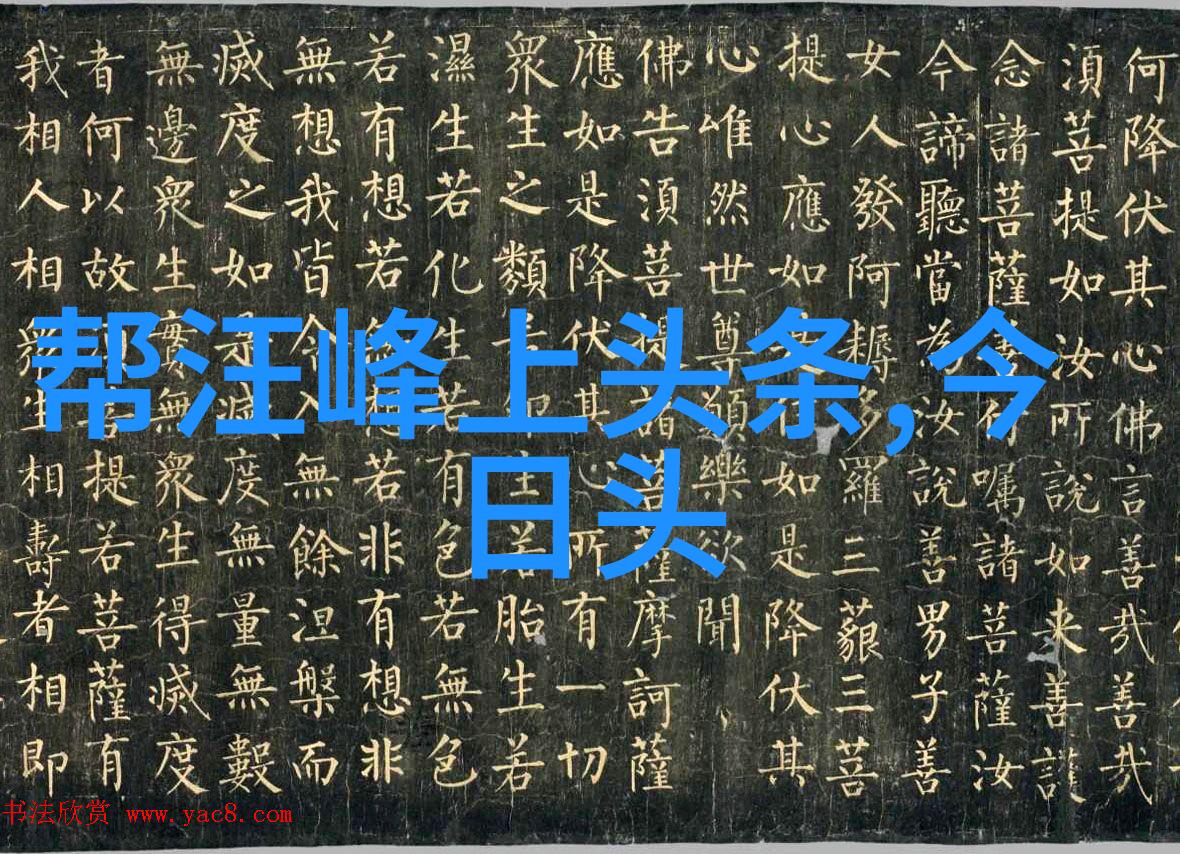 帮汪峰上头条,今
日头
何降伏其心佛言善哉善哉
須菩提如汝所說如来善護
念諸菩薩善付嘱諸菩薩汝
今諦聽當為汝說善男子善
女人發阿耨多羅三藐三菩
提心應如是住如是降伏其
心唯然世尊願樂欲聞
佛告須菩提諸菩薩摩訶薩
應如是降伏其心所有一切
衆生之類若卵生若胎生若
濕生若化生若有色若無色
若有想若無想若非有想非
無想我皆令入無餘涅槃而
滅度之如是滅度無量無數
無邊衆生實無衆生得滅度
者何以故提若菩薩有
我相人相衆生相壽者相即
书法欣赏 www.yac8.com